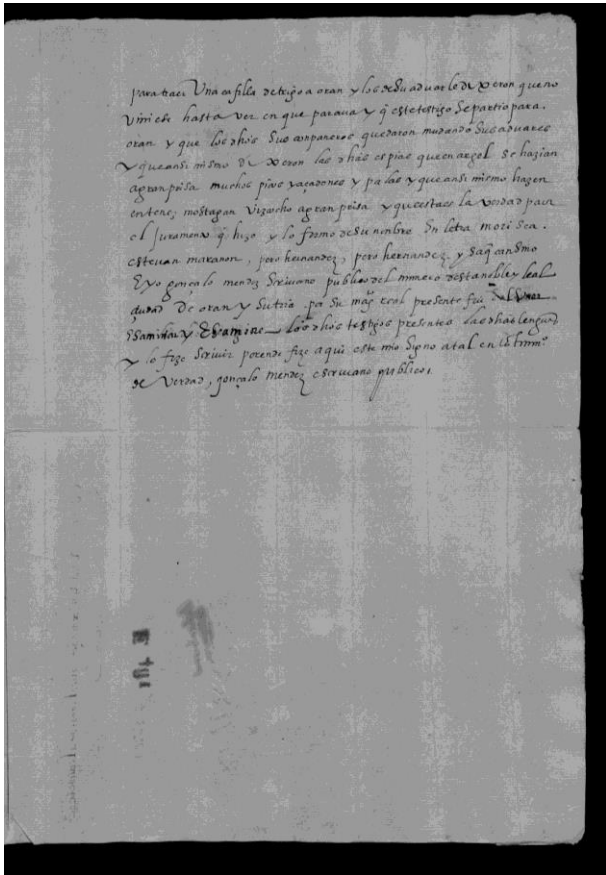 para traer Una cafilla de trigo a oran y los de Su aduar le dixeron que no
Viniese hasta ver en que parava y q̃ este testigo Se partio para
oran y que los dhõs Sus conpaneros quedaron mudando Sus aduares
y que ansi mismo dixeron las dhãs espias que en argel Se hazian
a gran prisa muchos picos y açadones y palas y que ansi mismo hazen
en tenez mostagan Vizcocho a gran prisa y que esta es la Verdad para
el juramento q̃ hizo y lo firmo de su nonbre En letra morisca
estevan maranon, pero hernandez, pero hernandez, y
E yo gonçalo mendez Scrivano publico del numero desta noble y leal
çiudad De oran y Su tria por Su mag. Real presente fui
Esaminar y Esamine los dhõs testigos presentes las dhãs lenguas
y lo fize Scrivir por ende fize aqui este mio Signo atal en testimº
de Verdad, gonçalo mendez escrivano publico.